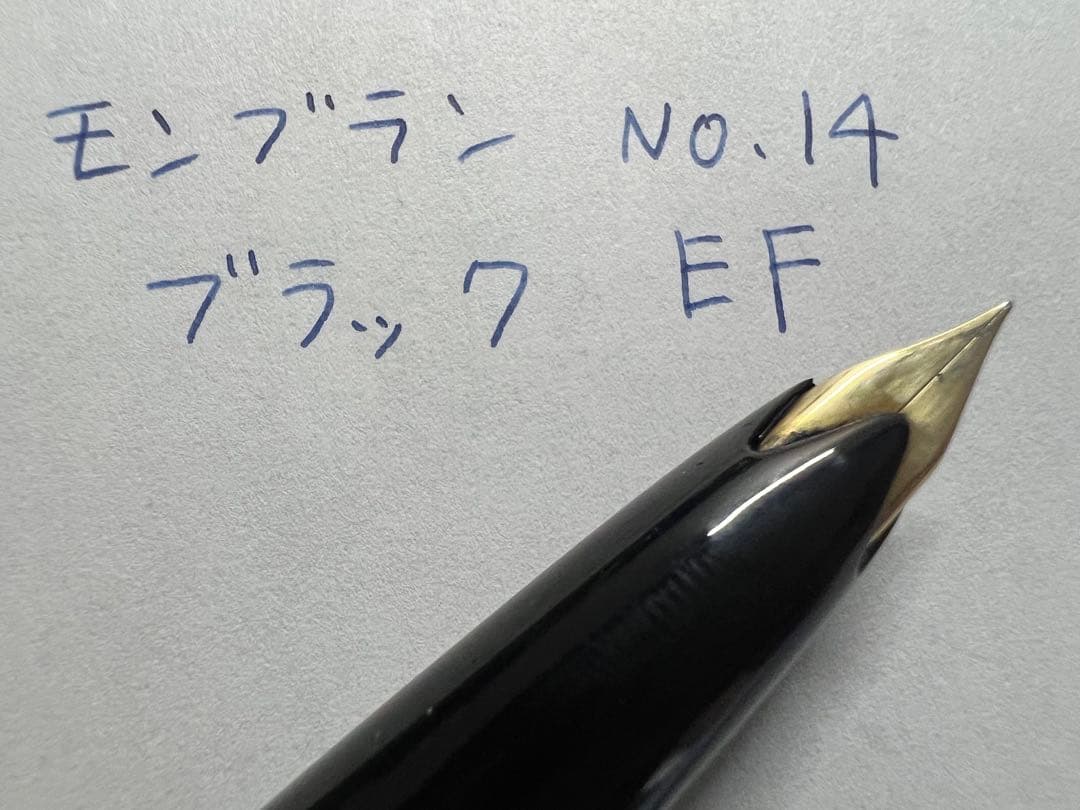 モンブラン NO.14
ブラック EF